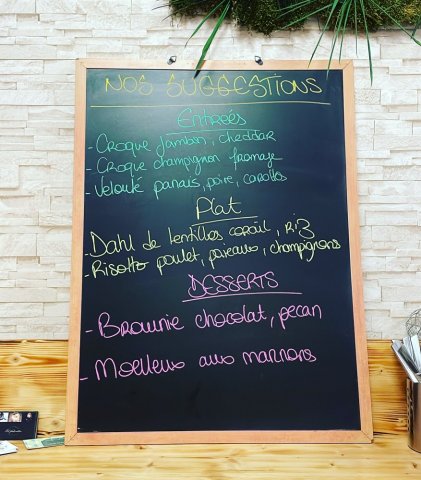 NOS SUGGESTIONS
Entrées
- Croque jambon, cheddar
- Croque champignon fromage
- Velouté panais, poire, carottes
Plat
- Dahl de lentilles corail, riz
- Risotto poulet, poireaux, champignons
DESSERTS
- Brownie chocolat, pecan
- Moelleux aux marrons